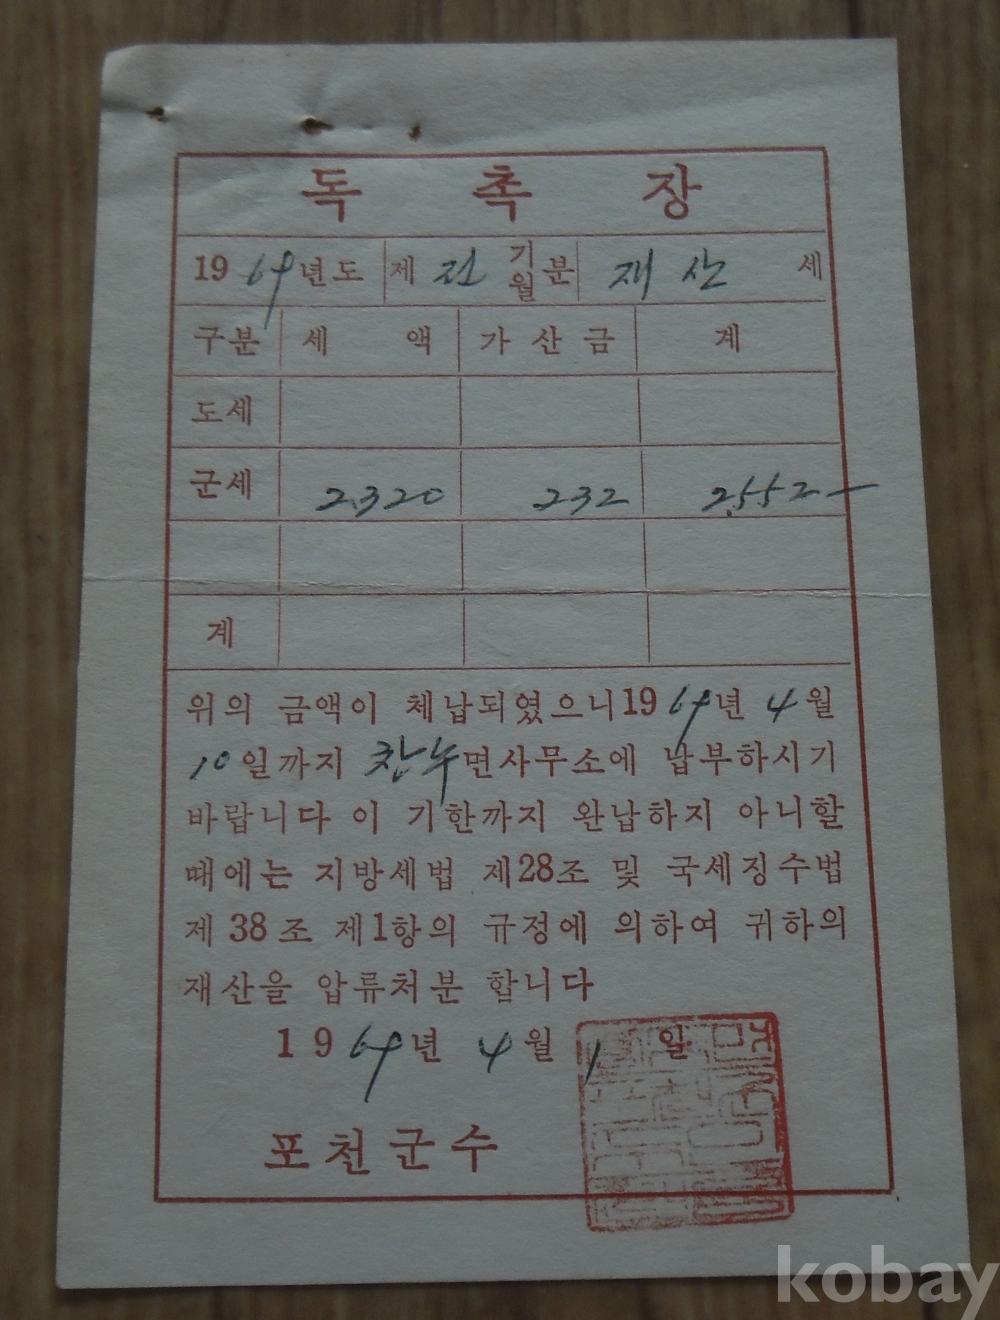 독 촉 장
1969년도 제 전 기월분 재산 세
구분 세 액 가산금 계
도세
군세 2,320 232 2,552-
계
위의 금액이 체납되였으니 1969년 4월
10일까지 창수면사무소에 납부하시기
바랍니다 이 기한까지 완납하지 아니할
때에는 지방세법 제28조 및 국세징수법
제38조 제1항의 규정에 의하여 귀하의
재산을 압류처분 합니다
1969년 4월 1일
포천군수
kobay